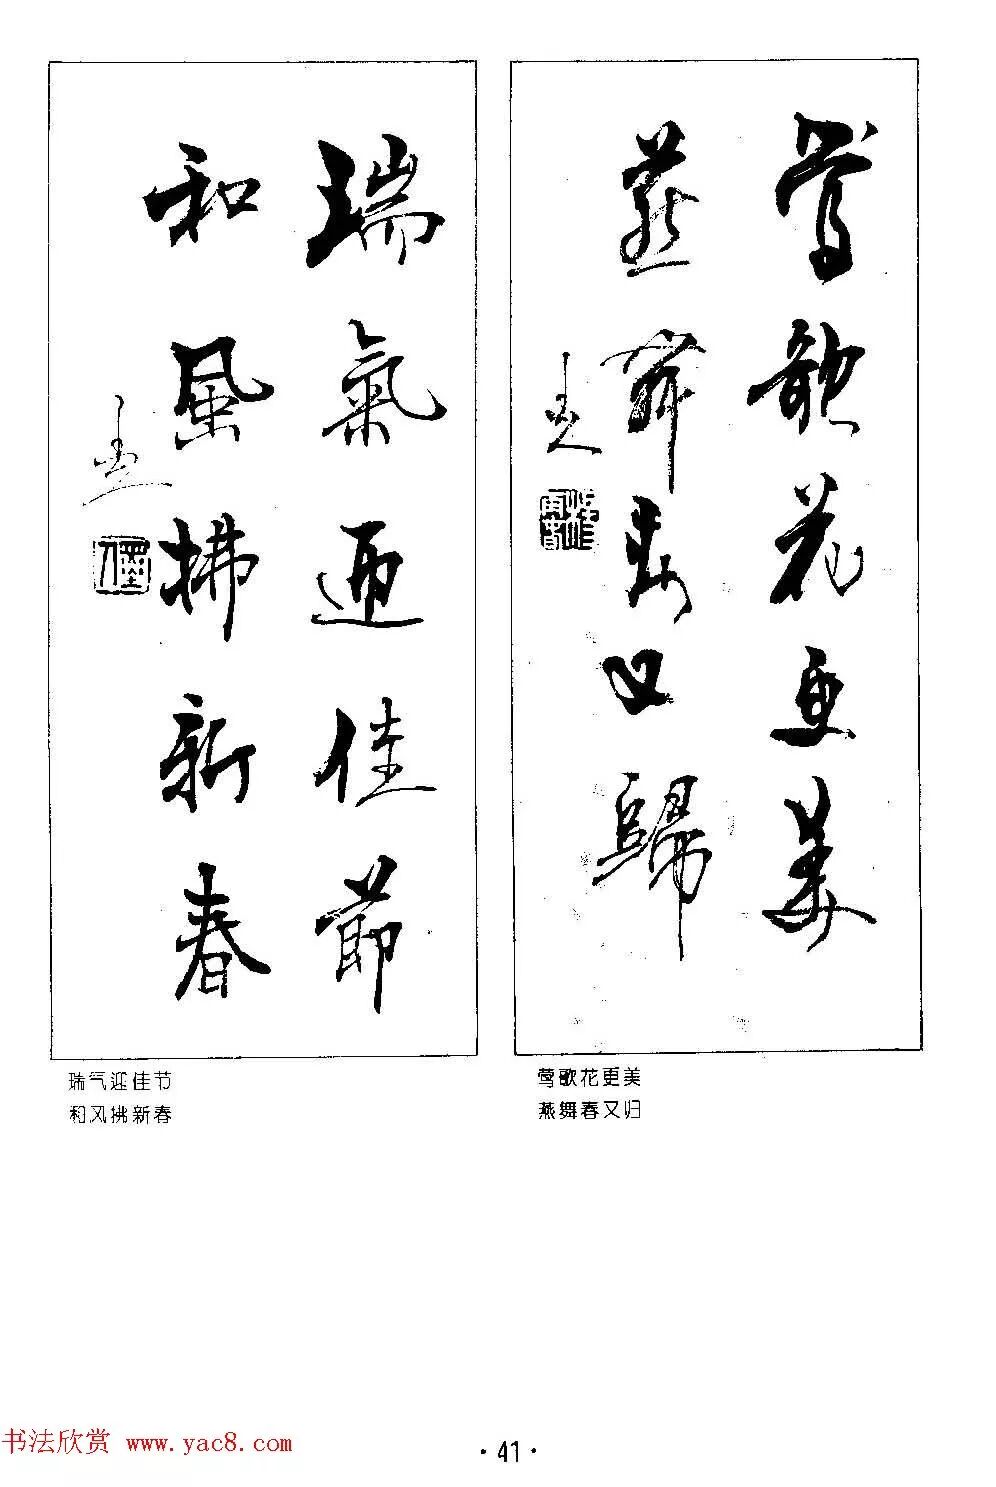 鶯歌花更美
燕舞春又歸
瑞氣迎佳節
和風拂新春
瑞气迎佳节
和风拂新春
莺歌花更美
燕舞春又归
书法欣赏 www.yac8.com
·41·